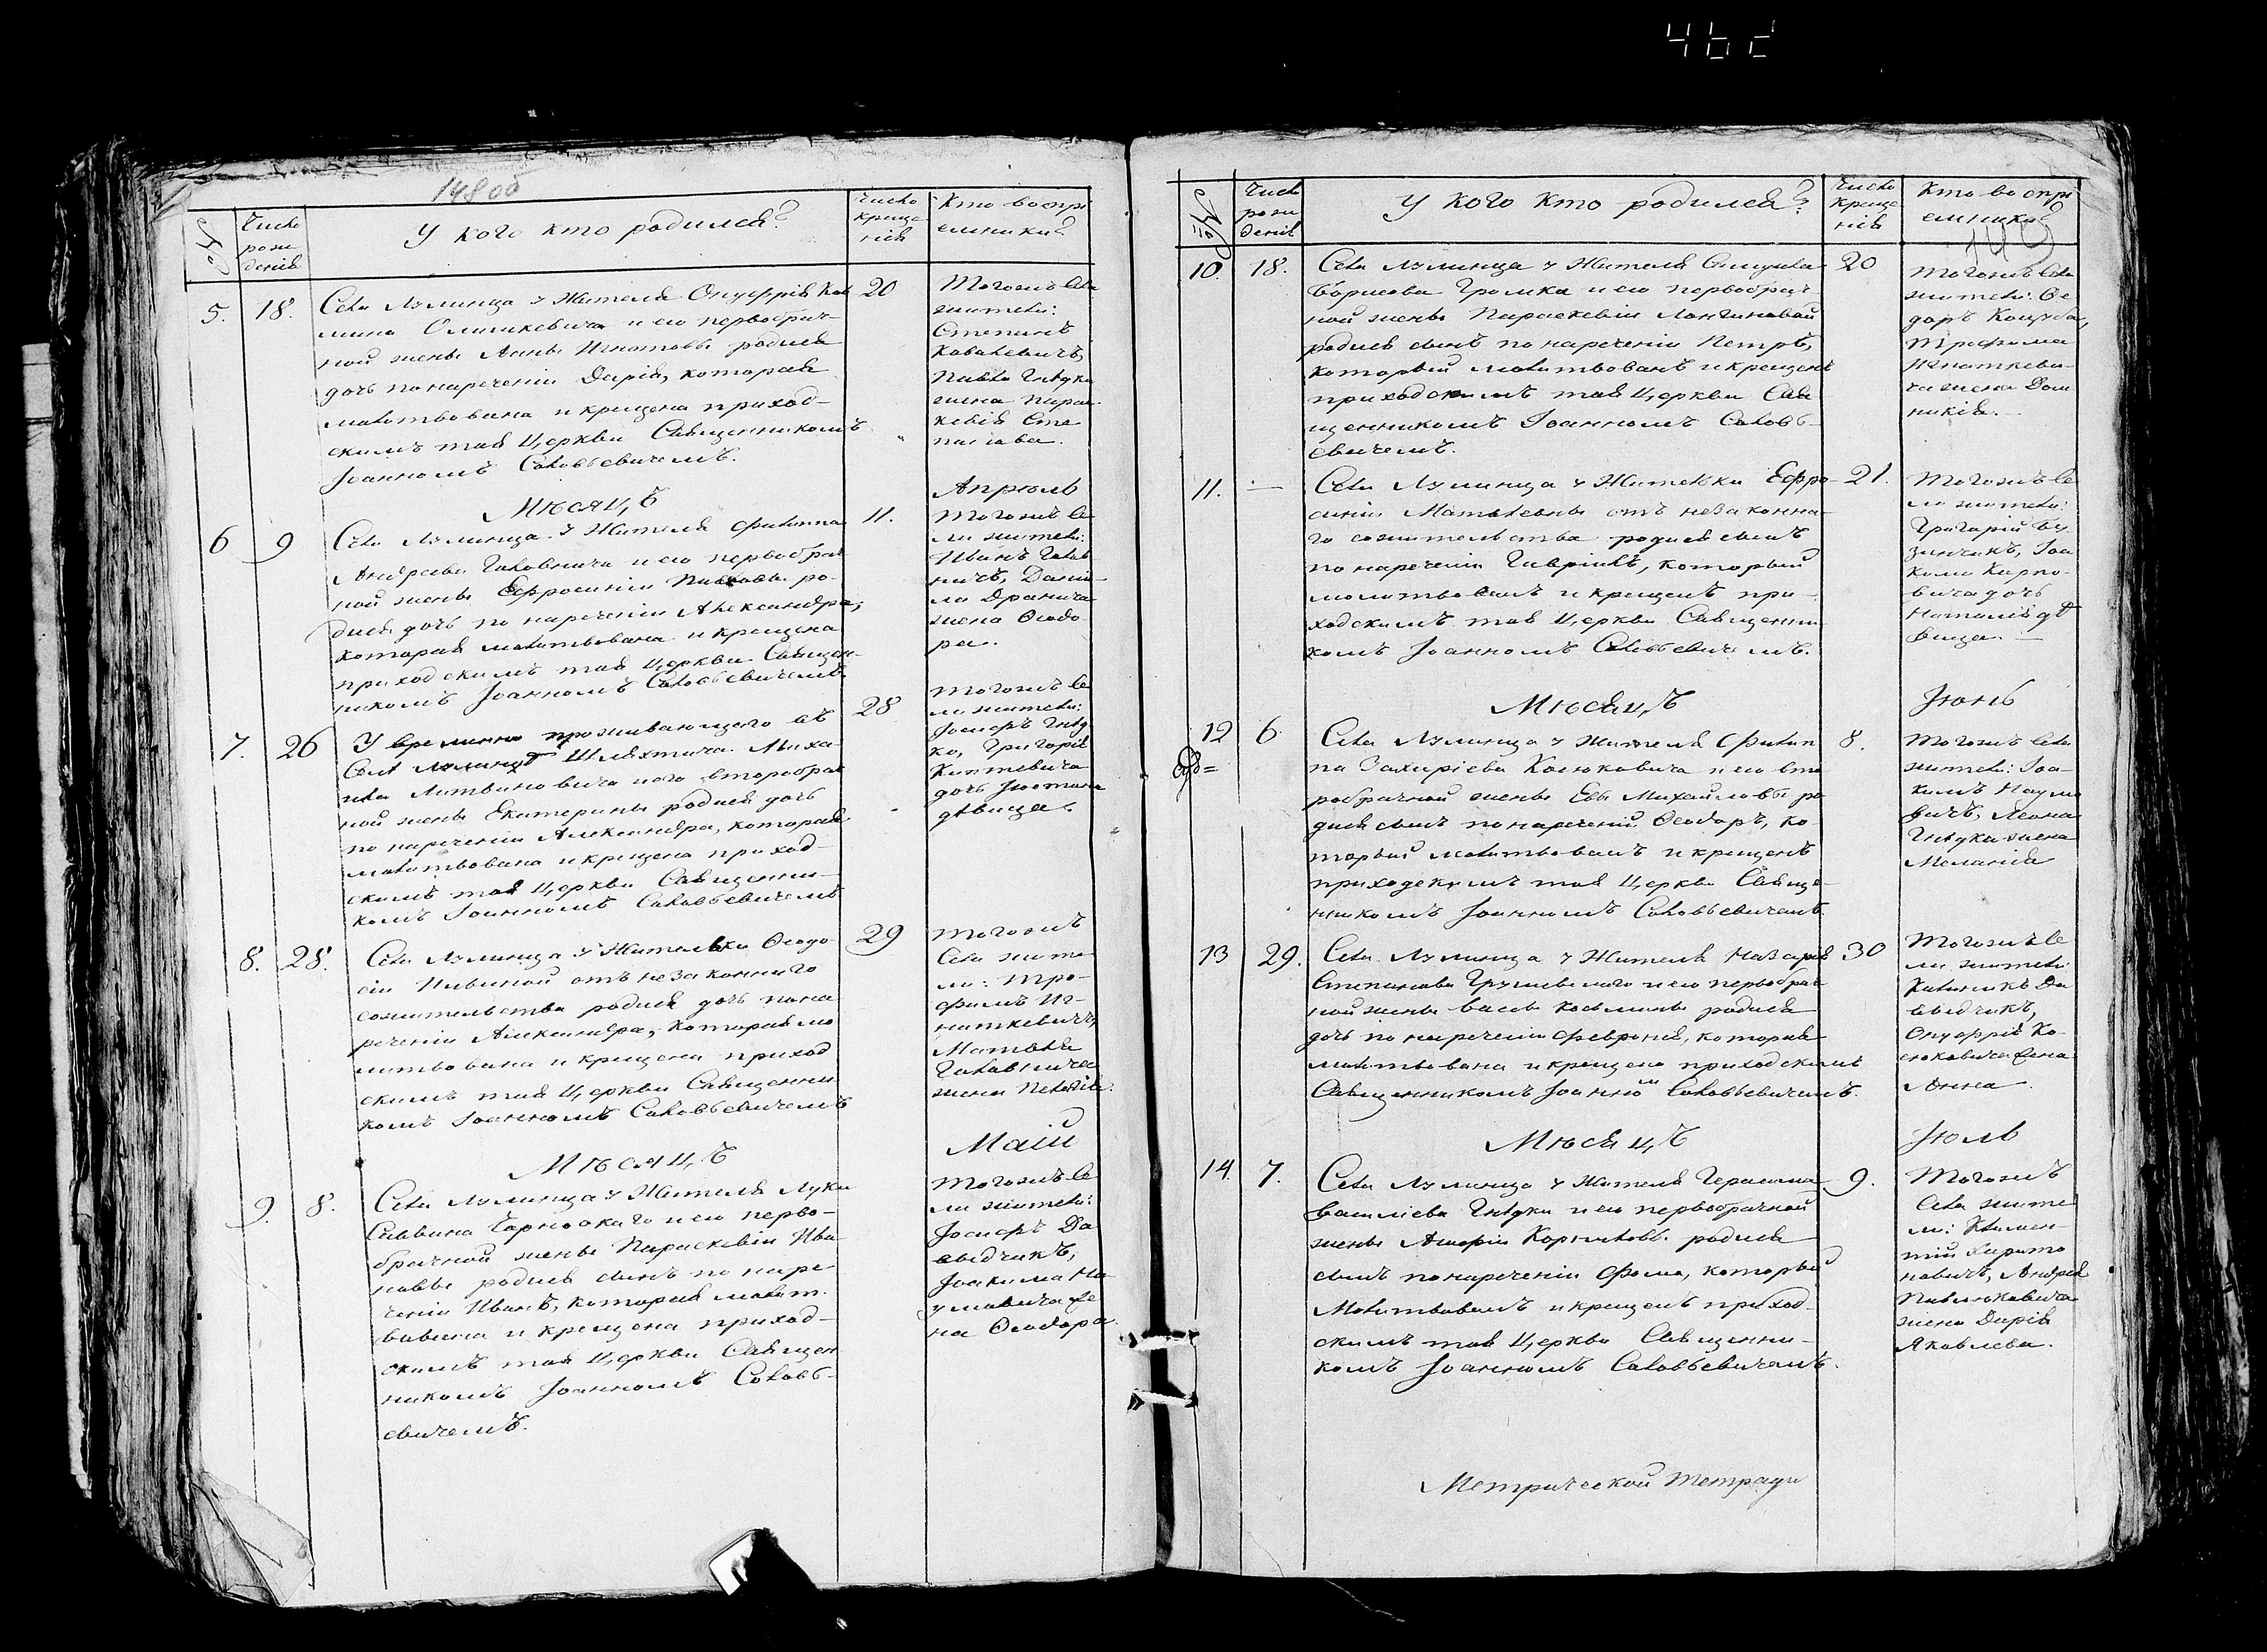 14800
№
Число рожденія
У кого кто родился?
Число крещенія
Кто воспріемники?
5. 18.
Села Лулинца у Жителя Онуфрія
Олишкевича и его первобрач-
ной жены Анны Игнатовы родися
дочь по наречении Дарія, которая
молитвована и крещена приход-
скимъ тоя Церкви Священникомъ
Іоанномъ Соловьевичемъ.
20
Тогожъ села
жители:
Степанъ
Ковалевичъ,
Павла Гнѣдка
жена Парас-
кевія Сте-
панова.
Мѣсяцъ
Апрѣль
6 9
Села Лулинца у Жителя Филиппа
Андреева Головнича и его первобрач
ной жены Ефросиніи Павловы ро-
дися дочь по наречении Александра,
которая молитвована и крещена
приходскимъ тоя Церкви Священ-
никомъ Іоанномъ Соловьевичемъ.
11.
Тогожъ се
ла жители:
Иванъ Голов
ничъ, Дани-
ла Дранича
жена Феодо
ра.
7. 26
У временно проживающего въ
Селѣ Лулинцѣ Шляхтича Миха-
ила Литвиновича и его второбрач
ной жены Екатерины родися дочь
по наречении Александра, которая
молитвована и крещена приход-
скимъ тоя Церкви Священни-
комъ Іоанномъ Соловьевичемъ
28
Тогожъ се
ла жители:
Іосифъ Гнѣд
ко, Григорія
дочь
дѣвица.
8. 28.
Села Лулинца у Жительки Феодо-
сіи Ивановой отъ незаконнаго
сожительства родися дочь по на
речении Александра, которая мо
литвована и крещена приход
скимъ тоя Церкви Священни
комъ Іоанномъ Соловьевичемъ
29
Тогожъ
Села жите
ли: Тро-
фимъ Иг-
наткевичъ,
Матвея
Головнича
жена Пелагія.
Мѣсяцъ
Маій
9. 8.
Села Лулинца у Жителя Луки
Саввина Чарноокаго и его перво-
брачной жены Параскевіи Ива
новы родися сынъ по наре
ченіи Иванъ, которая молит-
вована и крещена приход-
скимъ тоя Церкви Священ
никомъ Іоанномъ Соловь-
евичемъ.
Тогожъ се
ла жители:
Іосифъ Да
выдчикъ,
Іоакима На-
умовича же
на Феодора.
№
Число рожденія
У кого кто родился?
Число крещенія
Кто воспріемники?
10. 18.
Села Лулинца у Жителя
Борисова Громка и его первобрач-
ной жены Параскевіи Лонгиновой
родися сынъ по наречении Петръ,
который молитвованъ и крещенъ
приходскимъ тоя Церкви Свя
щенникомъ Іоанномъ Соловь-
евичемъ.
20
Тогожъ села
жители: Фе-
доръ Коцуба,
Трофима
Игнаткеви-
ча жена Дом
никія.
11. —
Села Лулинца у Жительки Ефро-
синіи Матвеевны отъ незаконна-
го сожительства родися сынъ
по наречении Гавріилъ, который
молитвованъ и крещенъ при-
ходскимъ тоя Церкви Священни
комъ Іоанномъ Соловьевичемъ.
21.
Тогожъ се
ла жители:
Григорій Бу-
зинчикъ, Іоа
кима Карпо-
вича дочь
Наталія дѣ
вица. —
Мѣсяцъ
Іюнь
12 6.
Села Лулинца у Жителя Филип
па Захаріева Косюковича и его вто
робрачной жены Евы Михайловы ро
дися сынъ по наречении Феодоръ, ко-
торый молитвованъ и крещенъ
приходскимъ тоя Церкви Свяще-
нникомъ Іоанномъ Соловьевичемъ.
8.
Тогожъ села
жители: Іоа-
кимъ Наумо
вичъ, Леона
Гнѣдка жена
Меланія
13 29.
Села Лулинца у Жителя Назарія
Степанова Грушевскаго и его первобрач-
ной жены Вассы Косьмины родися
дочь по наречении Февронія, которая
молитвована и крещена приходскимъ
Священникомъ Іоанномъ Соловьевичемъ.
30
Тогожъ се
ла жители:
Калиникъ Да
выдчикъ,
Онуфрія Ко-
сюковича жена
Анна.
Мѣсяцъ
Іюль
14. 7.
Села Лулинца у Жителя Герасима
Василіева Гнѣдки и его первобрачной
жены родися
сынъ по наречении Фома, который
молитвованъ и крещенъ приход-
скимъ тоя Церкви Священни-
комъ Іоанномъ Соловьевичемъ.
9.
Тогожъ
Села жите
ли: Климен-
тій Харито
новичъ, Андрея
Павлюковича
жена Дарія
Яковлева.
Метрической тетради